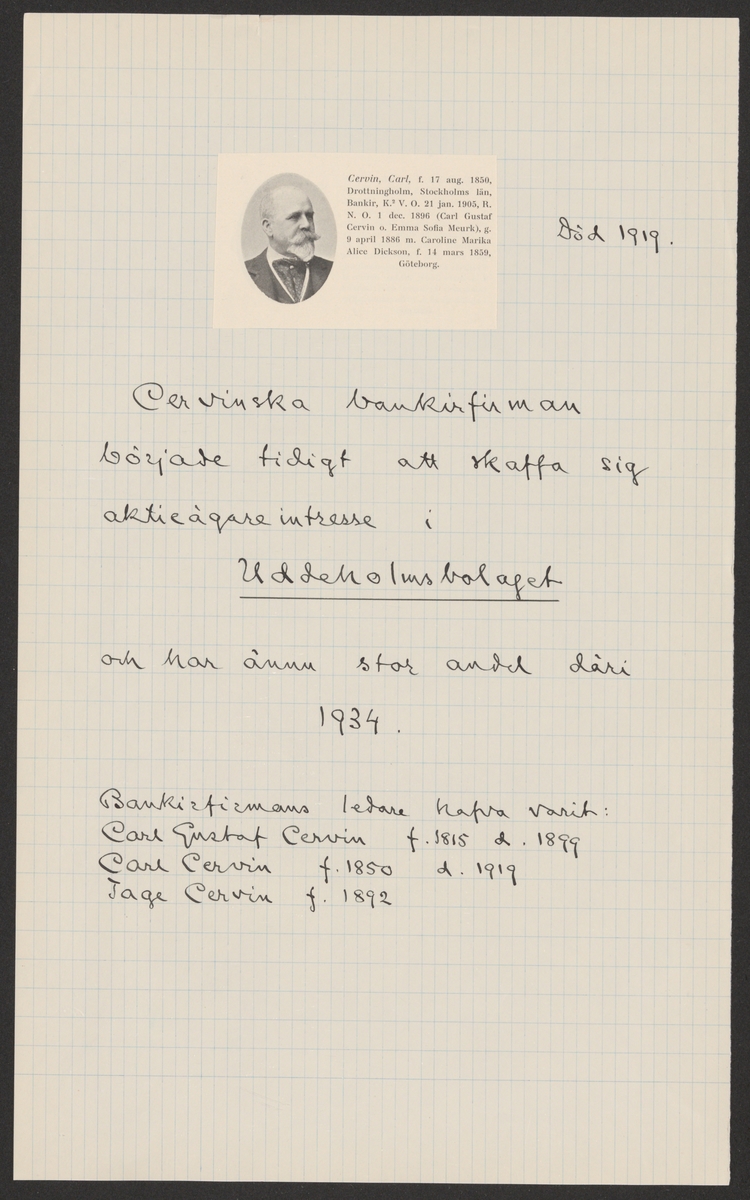 Cervin, Carl, f. 17 aug. 1850,
Drottningholm, Stockholms län,
Bankir, K.² V. O. 21 jan. 1905, R.
N. O. 1 dec. 1896 (Carl Gustaf
Cervin o. Emma Sofia Meurk), g.
9 april 1886 m. Caroline Marika
Alice Dickson, f. 14 mars 1859,
Göteborg.
Död 1919.
Cervinska bankirfirman
började tidigt att skaffa sig
aktieägareintresse i
Uddeholmsbolaget
och har ännu stor andel däri
1934.
Bankirfirmans ledare hafva varit:
Carl Gustaf Cervin f. 1815 d. 1899
Carl Cervin f. 1850 d. 1919
Tage Cervin f. 1892